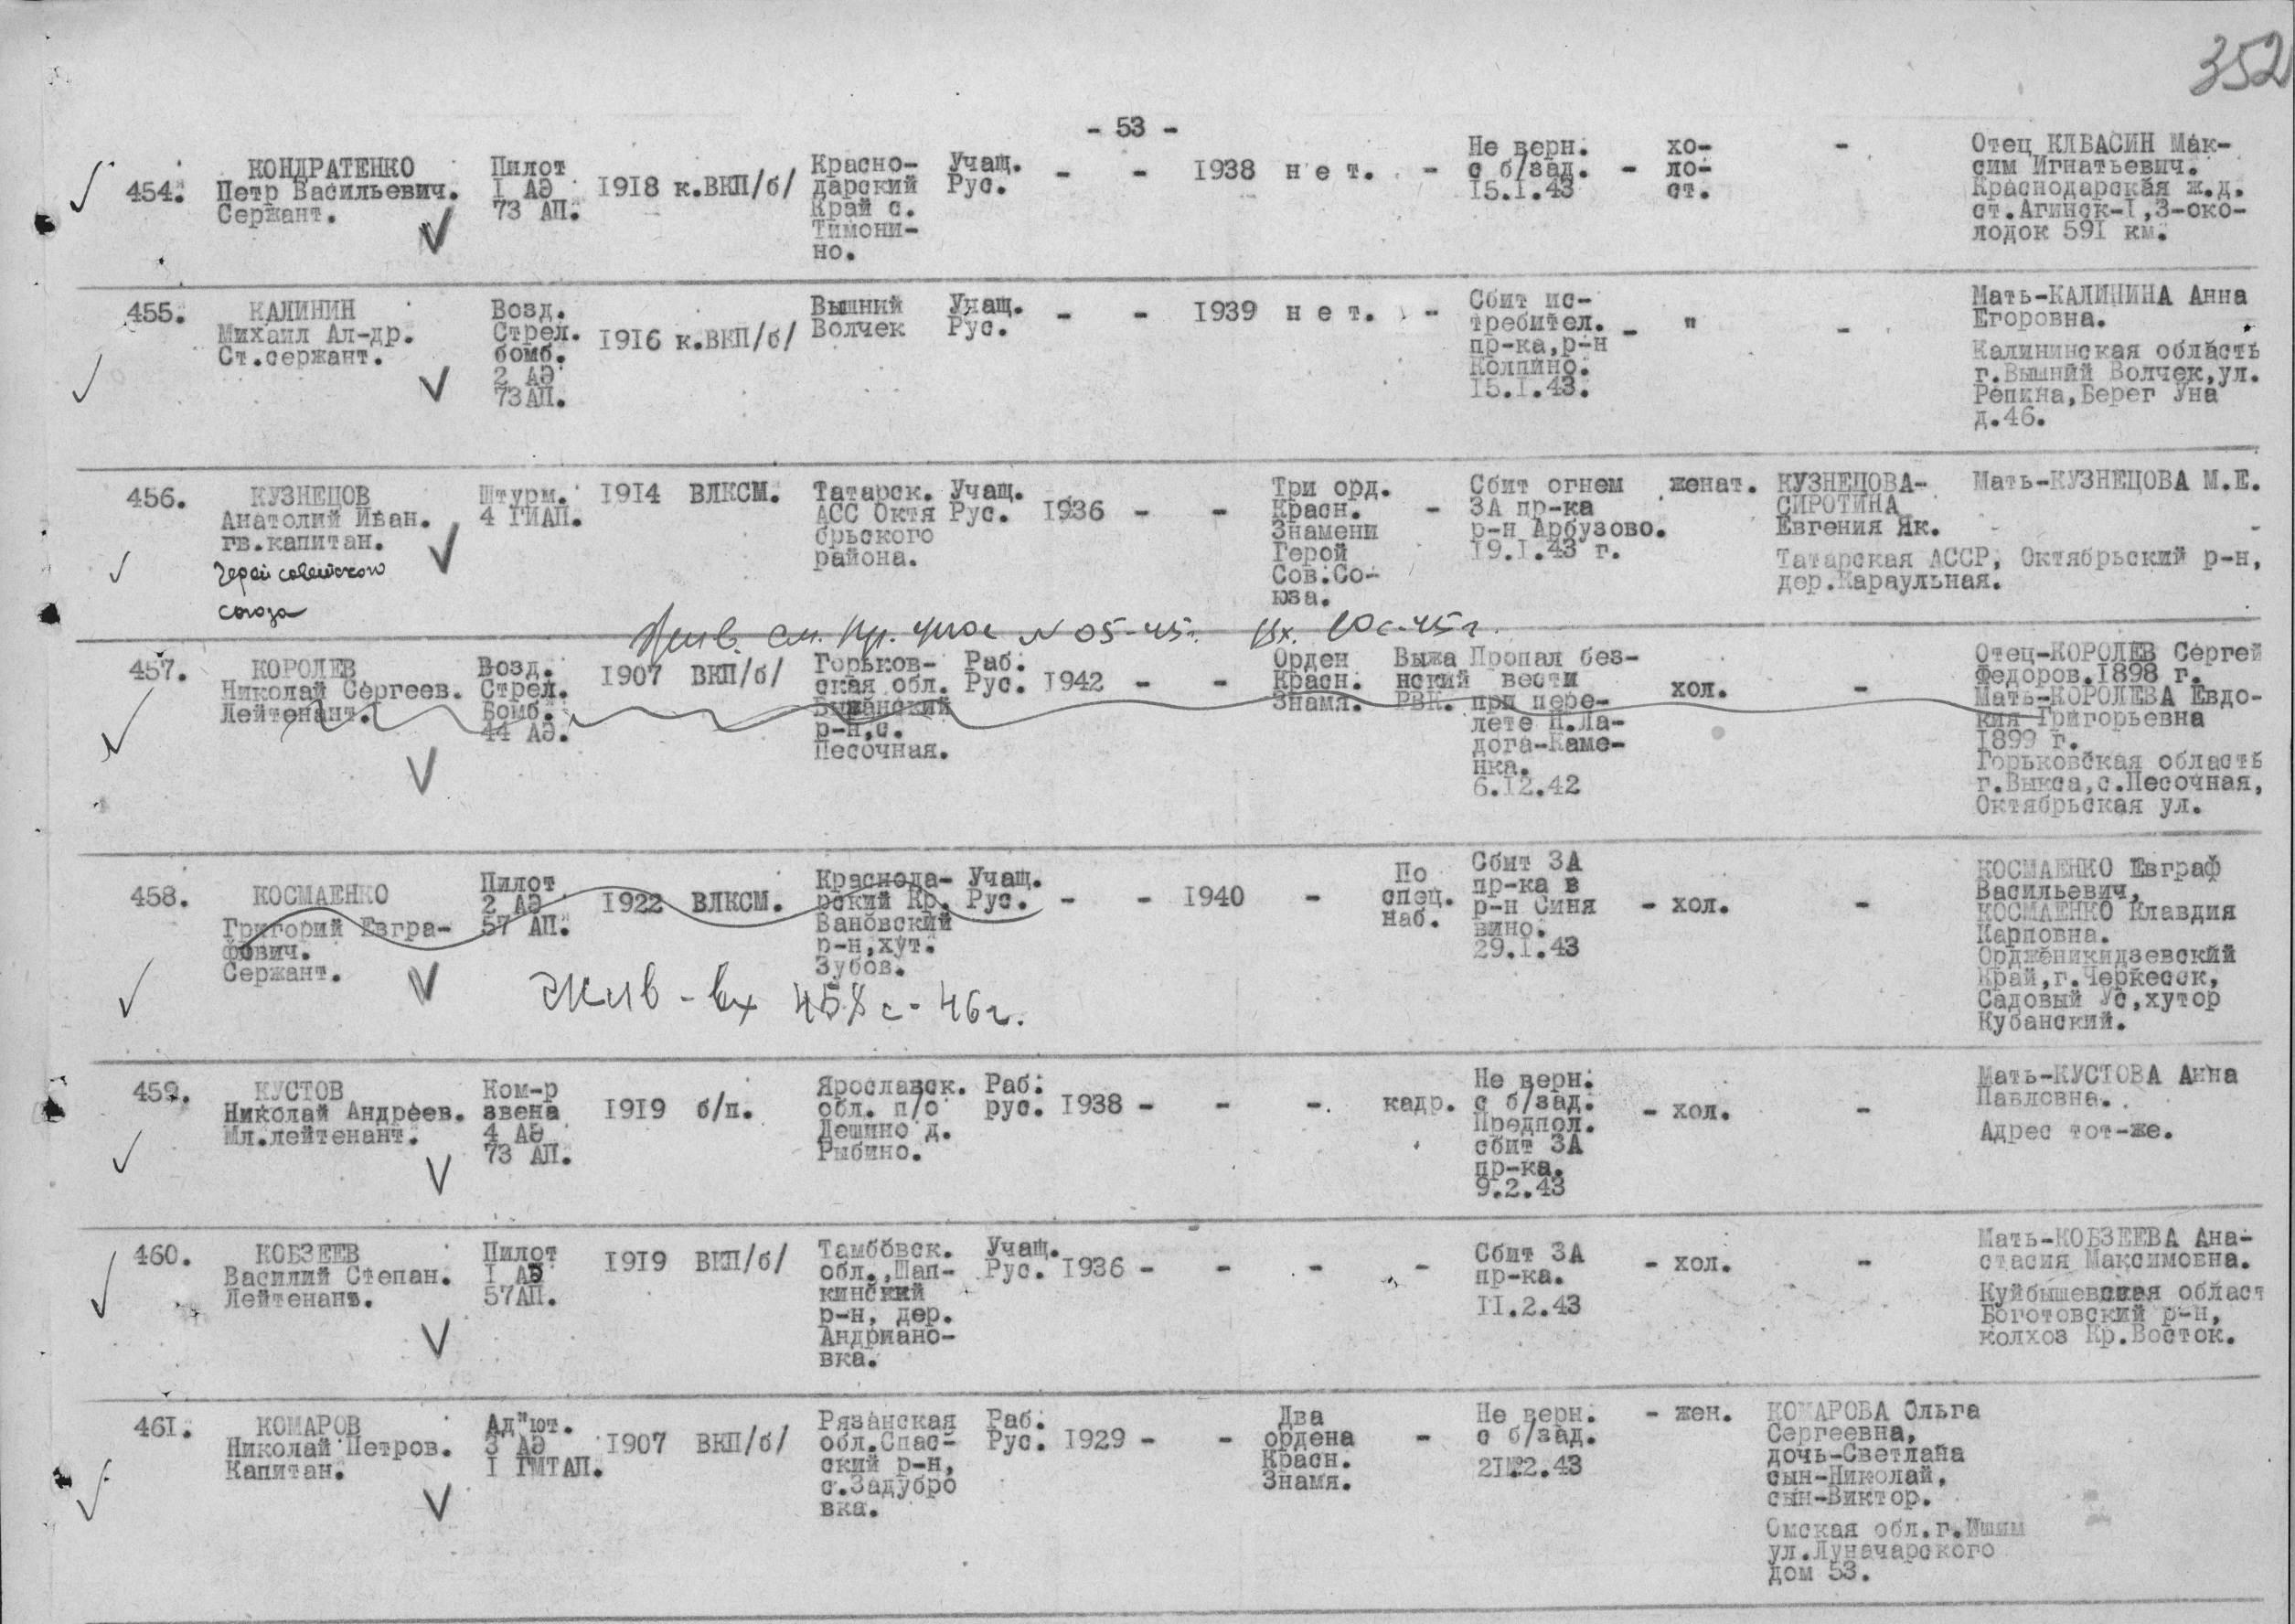 352
- 53 -
454. КОНДРАТЕНКО
Петр Васильевич.
Сержант.
Пилот
I АЭ
73 АП.
1918 к.ВКП/б/
Красно-
дарский
Край с.
Тимони-
но.
Учащ.
Рус.
- - 1938 н е т. -
Не верн.
с б/зад.
15.1.43
- хо-
ло-
ст.
-
Отец КЛБАСИН Мак-
сим Игнатьевич.
Краснодарская ж.д.
ст.Агинск-I,3-око-
лодок 591 км.
455. КАЛИНИН
Михаил Ал-др.
Ст.сержант.
Возд.
Стрел.
бомб.
2 АЭ
73АП.
1916 к.ВКП/б/
Вышний
Волчек
Учащ.
Рус.
- - 1939 н е т. -
Сбит ис-
требител.
пр-ка,р-н
Колпино.
15.1.43.
- " -
Мать-КАЛИНИНА Анна
Егоровна.
Калининская область
г.Вышний Волчек,ул.
Репина,Берег Уна
д.46.
456. КУЗНЕЦОВ
Анатолий Иван.
гв.капитан.
Герой советского
союза
Штурм.
4 ГИАП.
1914 ВЛКСМ.
Татарск.
АСС Октя
брьского
района.
Учащ.
Рус.
1936 - -
Три орд.
Красн.
Знамени
Герой
Сов.Со-
юза.
-
Сбит огнем
ЗА пр-ка
р-н Арбузово.
19.1.43 г.
женат.
КУЗНЕЦОВА-
СИРОТИНА
Евгения Як.
Мать-КУЗНЕЦОВА М.Е.
Татарская АССР, Октябрьский р-н,
дер.Караульная.
Жив. см. пр. N 05-45г. Вх. 10с-45г.
457. КОРОЛЕВ
Николай Сергеев.
Лейтенант.
Возд.
Стрел.
Бомб.
44 АЭ.
1907 ВКП/б/
Горьков-
ская обл.
р-н,с.
Песочная.
Раб.
Рус.
1942 - -
Орден
Красн.
Знамя.
Выжа
нский
РВК.
Пропал без-
вести
при пере-
лете Н.Ла-
дога-Каме-
нка.
6.12.42
хол.
-
Отец-КОРОЛЕВ Сергей
Федоров.1898 г.
Мать-КОРОЛЕВА Евдо-
кия Григорьевна
1899 г.
Горьковская область
г.Выкса,с.Песочная,
Октябрьская ул.
458. КОСМАЕНКО
Григорий Евгра-
фович.
Сержант.
Пилот
2 АЭ
57 АП.
1922 ВЛКСМ.
Краснода-
рский Кр.
Вановский
р-н,хут.
Зубов.
Учащ.
Рус.
- - 1940 -
По
спец.
наб.
Сбит ЗА
пр-ка в
р-н Синя
вино.
29.1.43
- хол.
-
КОСМАЕНКО Евграф
Васильевич,
КОСМАЕНКО Клавдия
Карповна.
Орджёникидзевский
Край,г.Черкесск,
Садовый Ус,хутор
Кубанский.
Жив - вх 458с - 46г.
459. КУСТОВ
Николай Андреев.
Мл.лейтенант.
Ком-р
звена
4 АЭ
73 АП.
1919 б/п.
Ярославск.
обл. п/о
Дешино д.
Рыбино.
Раб.
рус.
1938 - - -.
кадр.
Не верн.
с б/зад.
Предпол.
сбит ЗА
пр-ка.
9.2.43
- хол.
-
Мать-КУСТОВА Анна
Павловна.
Адрес тот-же.
460. КОБЗЕЕВ
Василий Степан.
Лейтенант.
Пилот
I АЭ
57АП.
1919 ВКП/б/
Тамбовск.
обл.,Шап-
кинский
р-н, дер.
Андриано-
вка.
Учащ.
Рус.
1936 - - - -
Сбит ЗА
пр-ка.
11.2.43
- хол.
-
Мать-КОБЗЕЕВА Ана-
стасия Максимовна.
Куйбышевская област
Боготовский р-н,
колхоз Кр.Восток.
461. КОМАРОВ
Николай Петров.
Капитан.
Ад"ют.
3 АЭ
I ГМТАП.
1907 ВКП/б/
Рязанская
обл.Спас-
ский р-н,
с.Задубро
вка.
Раб.
Рус.
1929 - -
Два
ордена
Красн.
Знамя.
-
Не верн.
с б/зад.
21.2.43
- жен.
КОМАРОВА Ольга
Сергеевна,
дочь-Светлана
сын-Николай,
сын-Виктор.
Омская обл.г.Ишим
ул.Луначарского
дом 53.